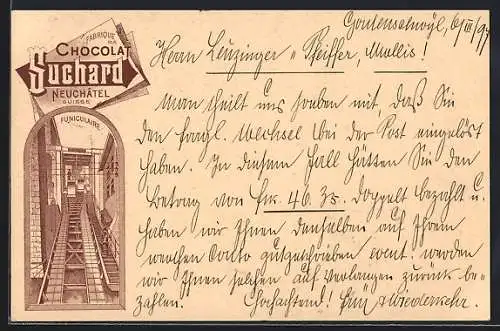 FABRIQUE
DE
CHOCOLAT
Suchard
NEUCHÂTEL
SUISSE
FUNICULAIRE
Gontenschwyl, 6/III/97
Herrn Leuzinger & Pfeiffer, Mollis!
Man theilt uns soeben mit, daß Sie
den fragl. Wechsel bei der Post eingelöst
haben. In diesem Fall hätten Sie den
Betrag von frk. 46.35. doppelt bezahlt u.
haben wir Ihnen denselben auf Ihrem
werthen Conto gutgeschrieben event. werden
wir Ihnen solchen auf Verlangen zurück be-
zahlen. Hochachtend! Wiederkehr.